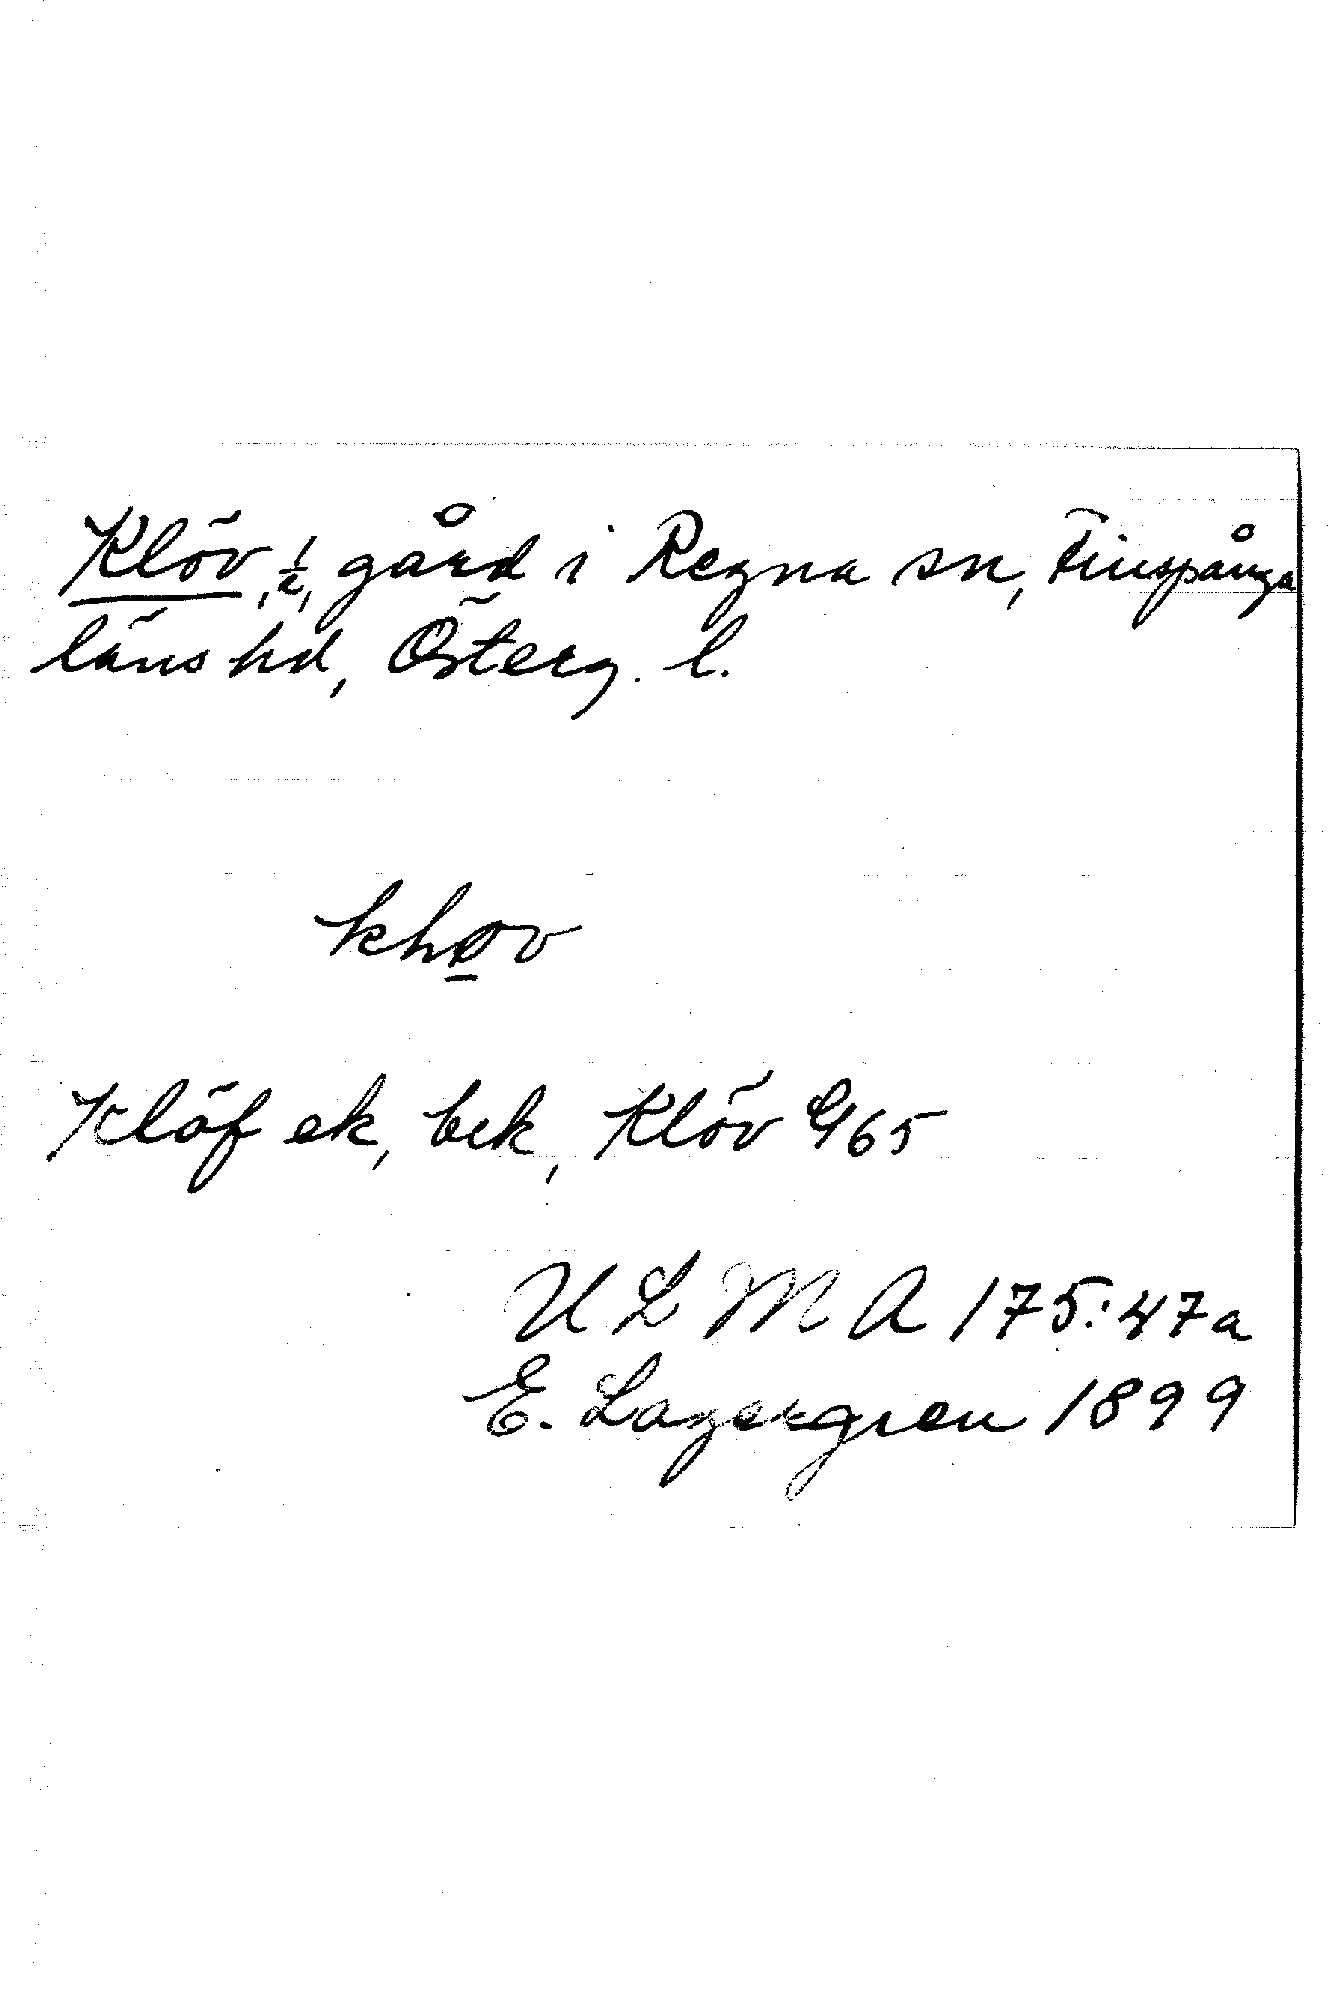 Klöv, ½, gård i Regna sn, Finspånga
läns hd, Österg. l.
khøv
Klöf ek, bek, Klöv G 65
U L M A 175:47a
E. Lagergren 1899